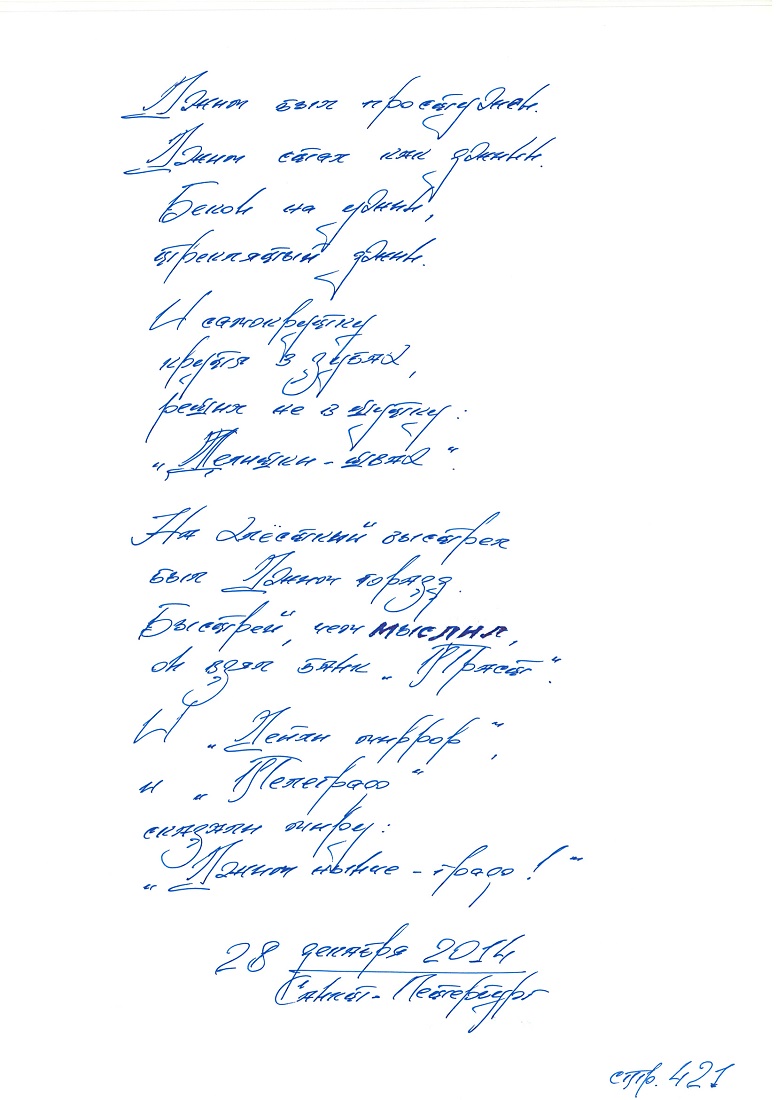 Джим был простужен.
Джим стал как джинн.
Бекон на ужин,
треклятый джин.
И самокрутку
крутя в зубах,
решил не в шутку:
„Делишки - швах“.
На хлёсткий выстрел
был Джим горазд.
Быстрей, чем мыслил,
он взял банк „Траст“.
И „Дейли миррор“,
и „Телеграф“
сказали миру:
„Джим ныне - граф!“
28 декабря 2014
Санкт-Петербург
стр. 421